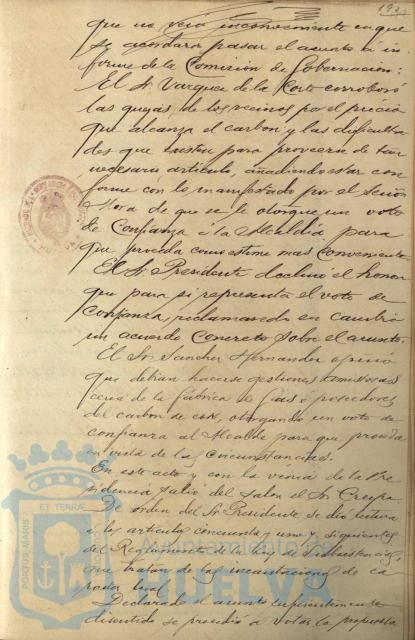 que no veía inconveniente en que
se acordara pasar el asunto a in-
forme de la Comisión de Gobernación:
El Sr. Vazquez de la Corte corroboró
las quejas de los vecinos por el precio
que alcanza el carbon y las dificulta-
des que existen para proveerse de tan
necesario artículo, añadiendo estar con-
forme con lo manifestado por el Señor
Mora de que se le otorgue un voto
de Confianza á la Alcaldía para
que proceda como estime mas conveniente.
El Sr. Presidente declinó el honor
que para si representa el voto de
confianza, reclamando en cambio
un acuerdo concreto sobre el asunto.
El Sr. Sanchez Hernandez opinó
que debian hacerse gestiones amistosas
cerca de la fábrica de Gas ó poseedores
del carbon de cok, otorgando un voto de
confianza al Alcalde para que proceda
en vista de las circunstancias.
En este acto y con la venia de la Pre-
sidencia salió del salon el Sr. Crespo.
De orden del Sr. Presidente se dió lectura
á los artículos cincuenta y uno y siguientes
del Reglamento de la Ley de Subsistencias,
que tratan de la incautacion de
Declarado el asunto suficientemente
discutido se procedió a votar la propuesta
PORTUS MARIS ET TERRAE
Ayuntamiento de
HUELVA